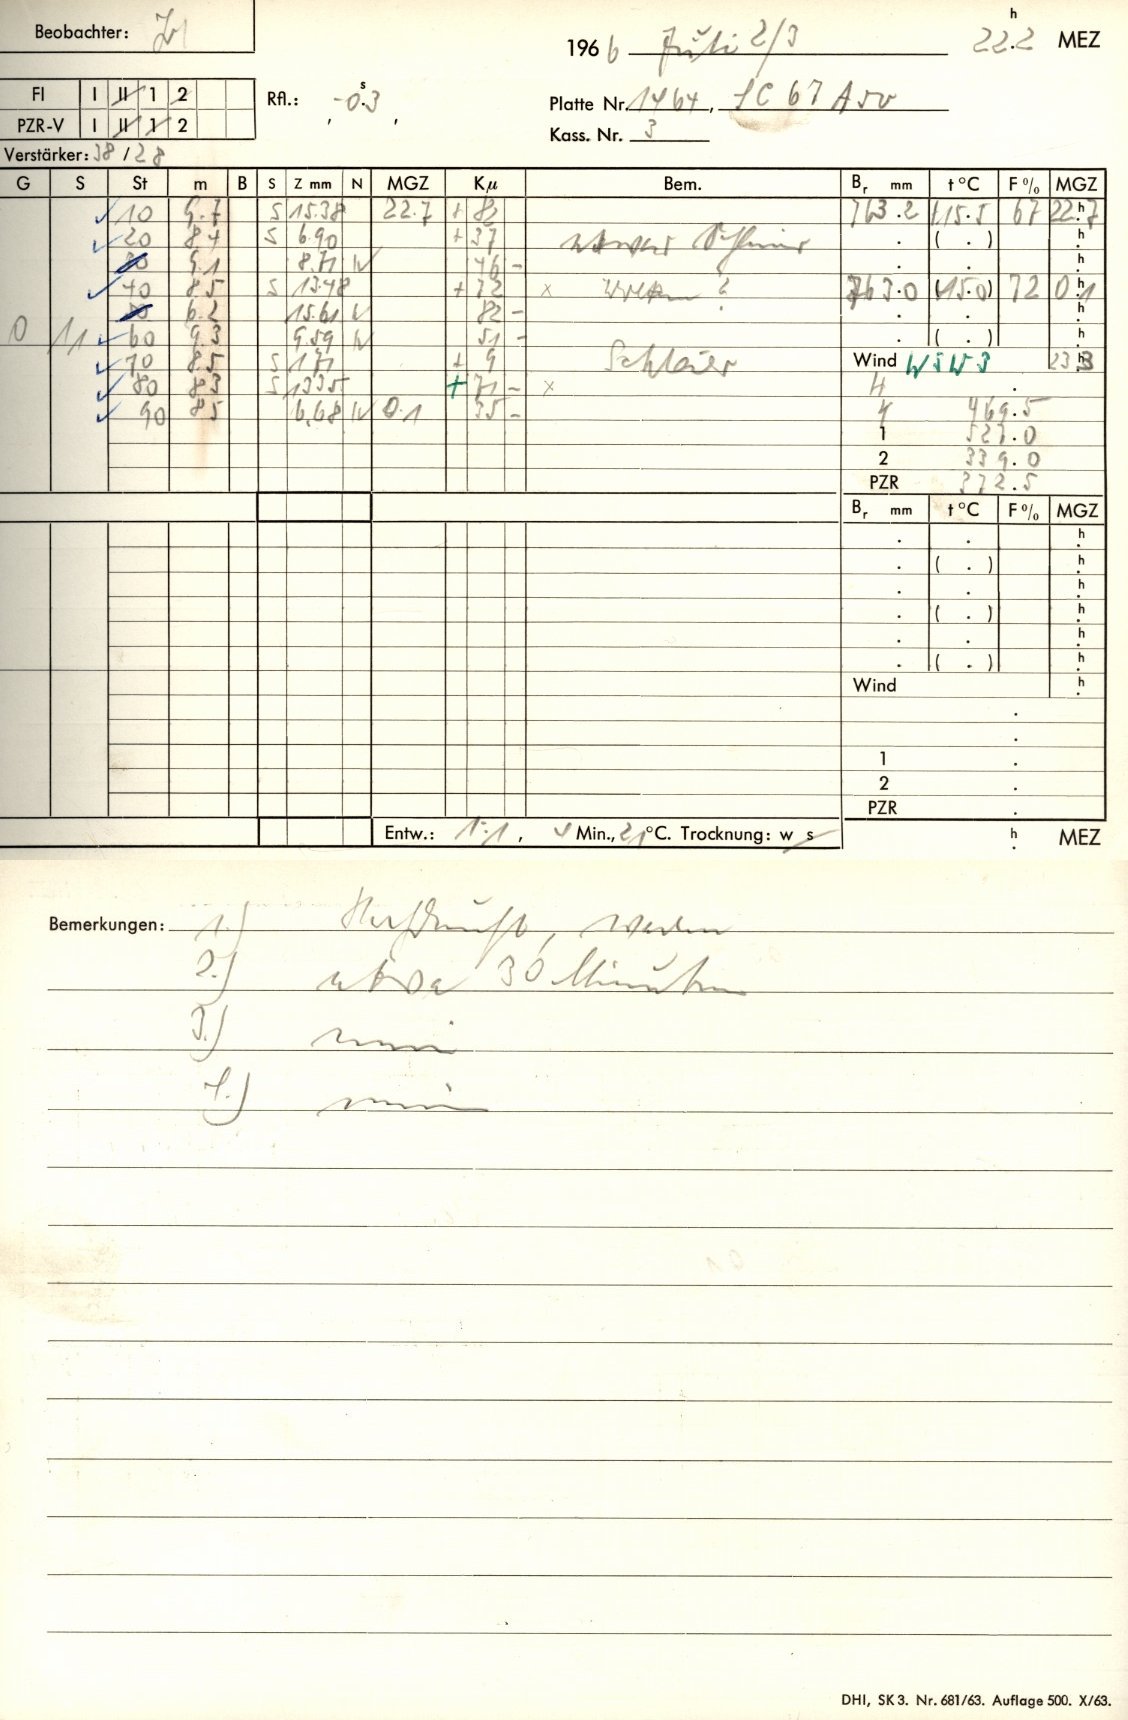 Beobachter:
1966 Juli 2/3 22.2 h MEZ
FI I II 1 2
PZR-V I II 1 2
Rfl.: -0.3 s
Platte Nr. 1464,
Kass. Nr. 3
Verstärker: 38 / 28
G S St m B S Z mm N MGZ Kμ Bem. Br mm t °C F % MGZ
10 9.7 S 15.38 22.7 + 82 763.2 (15.5 67 22.7 h
20 8.4 S 6.90 + 37 etwas . ( . ) h
9.1 8.71 W 46 - . . h
40 8.5 S 13.48 + 72 x ? 763.0 (15.0) 72 0.1 h
6.2 15.61 W 82 - . . h
0 11 60 9.3 9.59 W 51 - . ( . ) h
70 8.5 S 1.71 + 9 Schleier Wind WSW 3 23.3 h
80 8.3 S 13.35 + 71 - x
90 8.5 6.68 W 0.1 35 - 469.5
1 527.0
2 339.0
PZR 372.5
Br mm t °C F % MGZ
. . h
. ( . ) h
. . h
. ( . ) h
. . h
. ( . ) h
Wind h
.
.
1 .
2 .
PZR .
Entw.: 1:1, 4 Min., 21 °C. Trocknung: w s h MEZ
Bemerkungen: 1.)
2.) etwa 30 Minuten
3.) nein
4.) nein
DHI, SK 3. Nr. 681/63. Auflage 500. X/63.